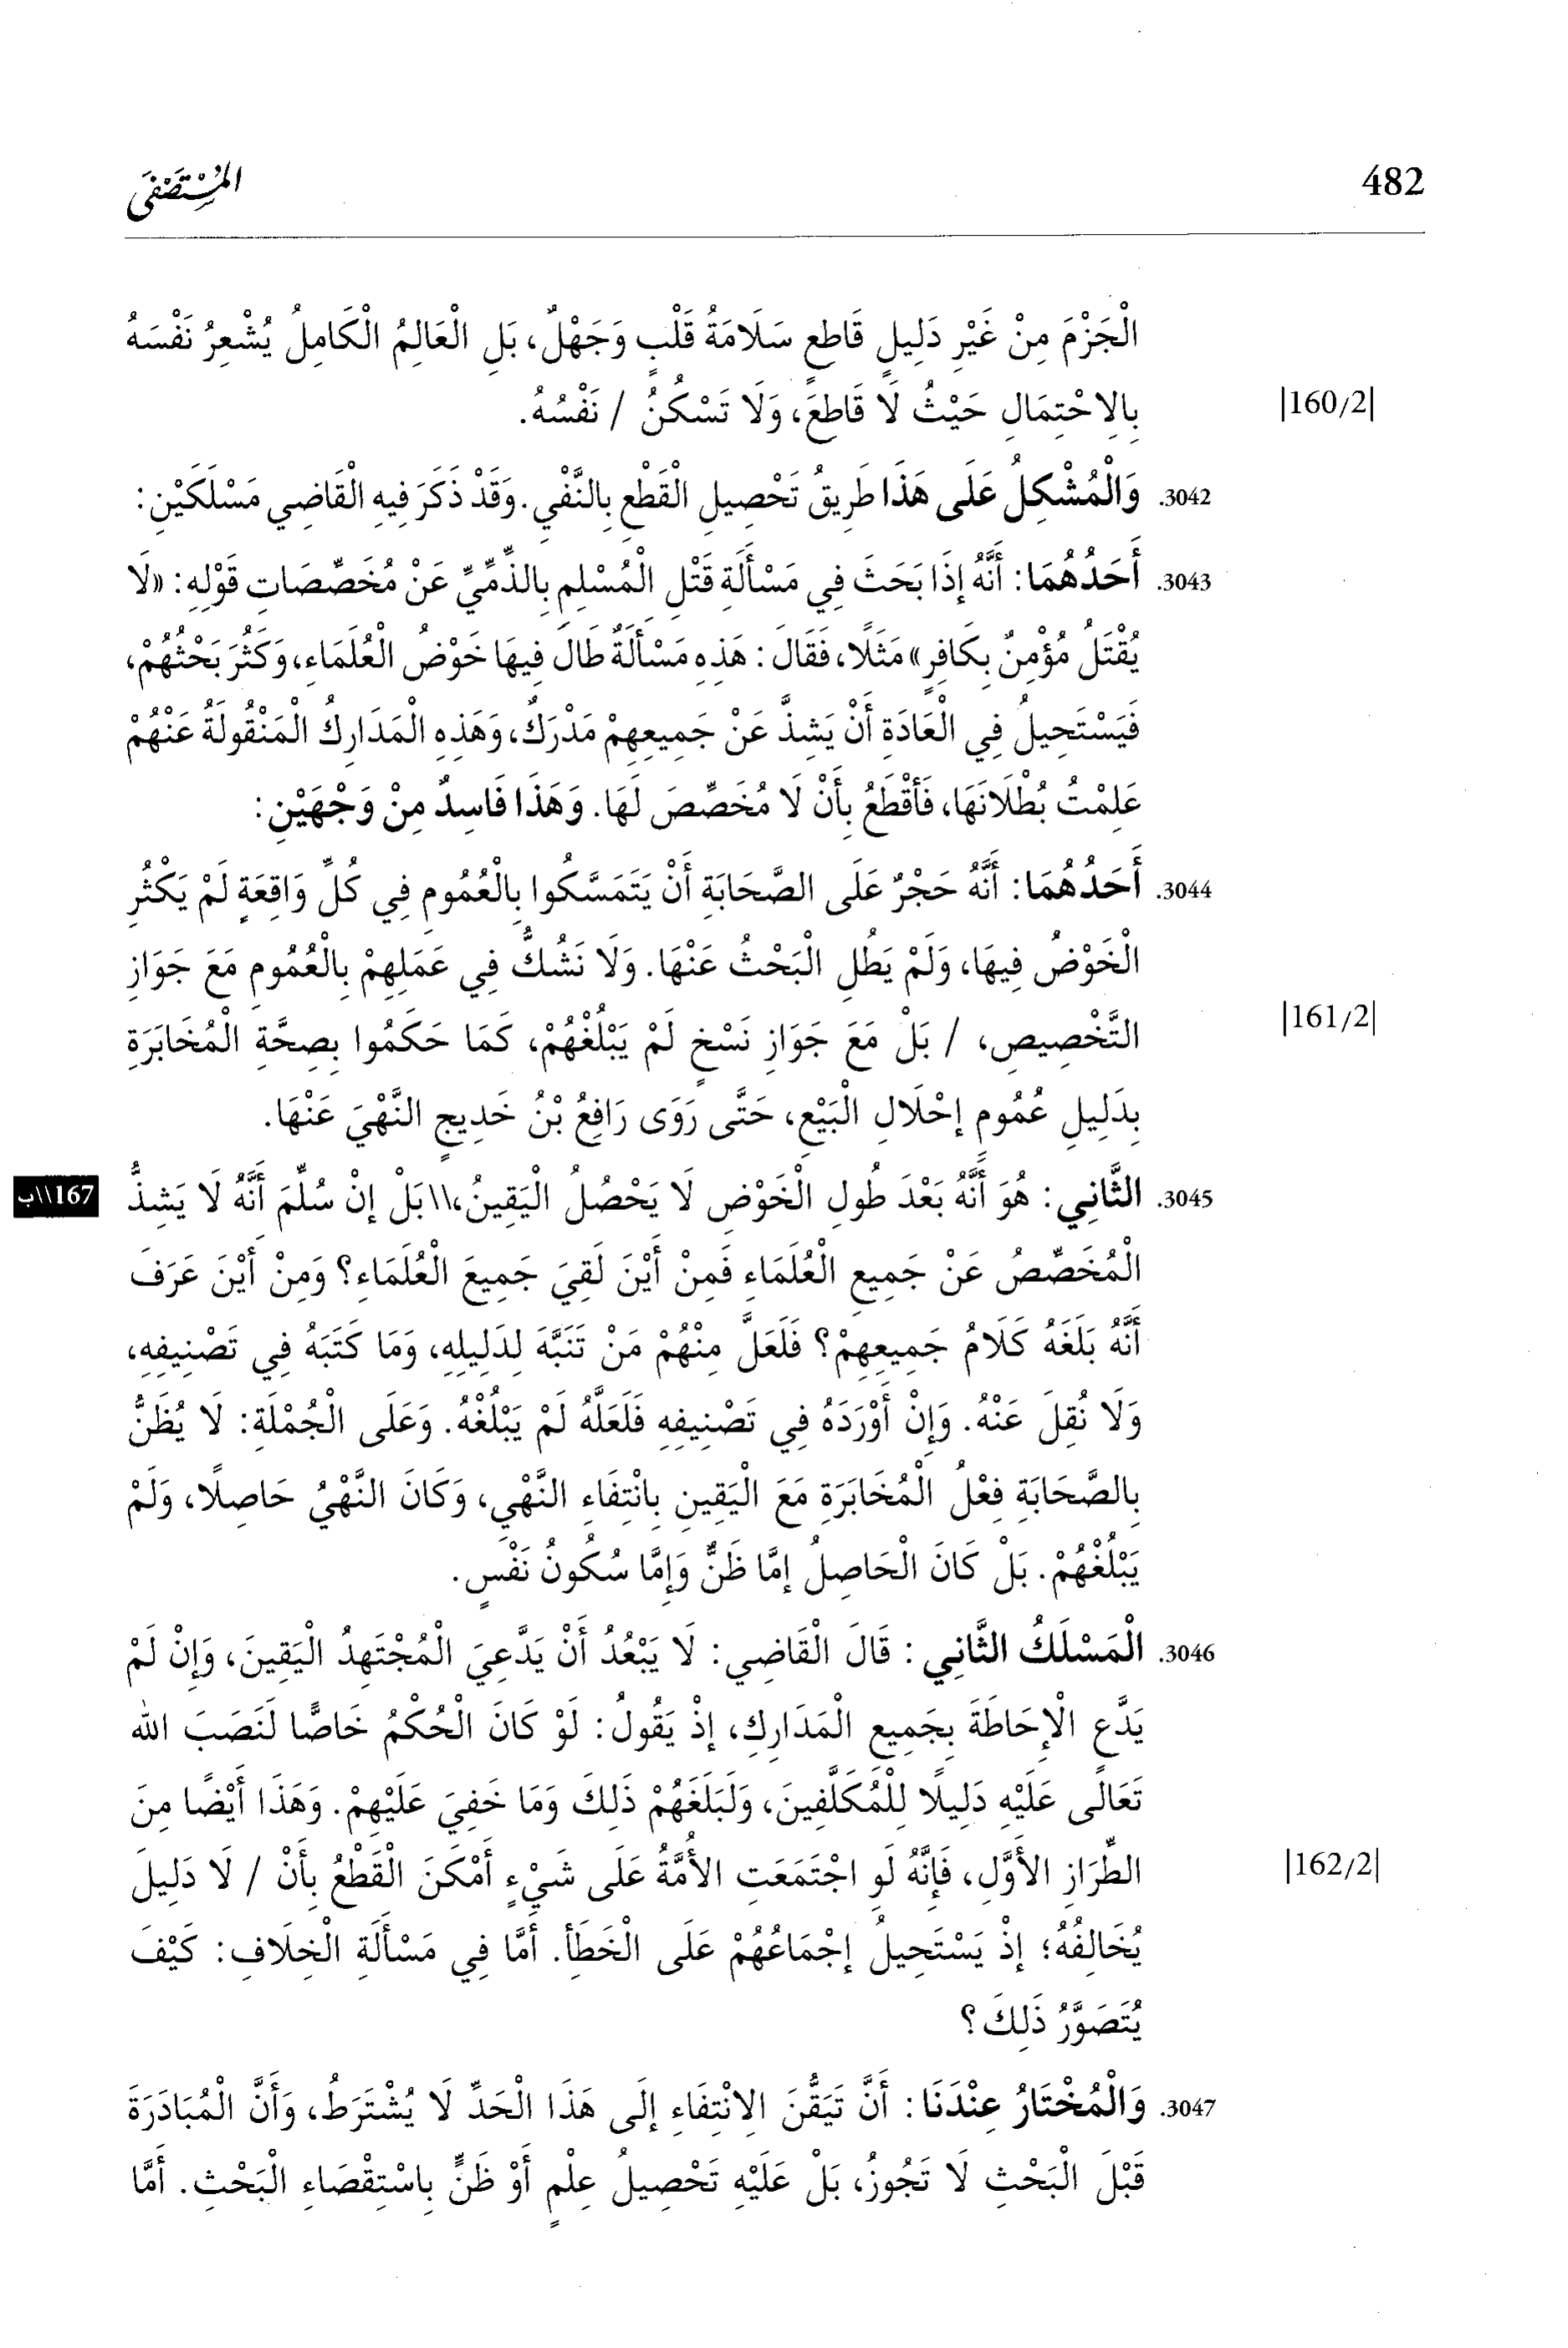 482 المُسْتَصْفَى
الْجَزْمَ مِنْ غَيْرِ دَلِيلٍ قَاطِعٍ سَلَامَةُ قَلْبٍ وَجَهْلٌ، بَلِ الْعَالِمُ الْكَامِلُ يُشْعِرُ نَفْسَهُ
|160/2| بِالِاحْتِمَالِ حَيْثُ لَا قَاطِعَ، وَلَا تَسْكُنُ / نَفْسُهُ.
3042. وَالْمُشْكِلُ عَلَى هَذَا طَرِيقُ تَحْصِيلِ الْقَطْعِ بِالنَّفْيِ. وَقَدْ ذَكَرَ فِيهِ الْقَاضِي مَسْلَكَيْنِ:
3043. أَحَدُهُمَا: أَنَّهُ إِذَا بَحَثَ فِي مَسْأَلَةِ قَتْلِ الْمُسْلِمِ بِالذِّمِّيِّ عَنْ مُخَصِّصَاتِ قَوْلِهِ: «لَا
يُقْتَلُ مُؤْمِنٌ بِكَافِرٍ» مَثَلًا، فَقَالَ: هَذِهِ مَسْأَلَةٌ طَالَ فِيهَا خَوْضُ الْعُلَمَاءِ، وَكَثُرَ بَحْثُهُمْ،
فَيَسْتَحِيلُ فِي الْعَادَةِ أَنْ يَشِذَّ عَنْ جَمِيعِهِمْ مَدْرَكٌ، وَهَذِهِ الْمَدَارِكُ الْمَنْقُولَةُ عَنْهُمْ
عَلِمْتُ بُطْلَانَهَا، فَأَقْطَعُ بِأَنْ لَا مُخَصِّصَ لَهَا. وَهَذَا فَاسِدٌ مِنْ وَجْهَيْنِ:
3044. أَحَدُهُمَا: أَنَّهُ حَجْرٌ عَلَى الصَّحَابَةِ أَنْ يَتَمَسَّكُوا بِالْعُمُومِ فِي كُلِّ وَاقِعَةٍ لَمْ يَكْثُرِ
الْخَوْضُ فِيهَا، وَلَمْ يَطُلِ الْبَحْثُ عَنْهَا. وَلَا نَشُكُّ فِي عَمَلِهِمْ بِالْعُمُومِ مَعَ جَوَازِ
|161/2| التَّخْصِيصِ، / بَلْ مَعَ جَوَازِ نَسْخٍ لَمْ يَبْلُغْهُمْ، كَمَا حَكَمُوا بِصِحَّةِ الْمُخَابَرَةِ
بِدَلِيلِ عُمُومِ إِحْلَالِ الْبَيْعِ، حَتَّى رَوَى رَافِعُ بْنُ خَدِيجٍ النَّهْيَ عَنْهَا.
3045. الثَّانِي: هُوَ أَنَّهُ بَعْدَ طُولِ الْخَوْضِ لَا يَحْصُلُ الْيَقِينُ،\\ بَلْ إِنْ سُلِّمَ أَنَّهُ لَا يَشِذُّ 167\\ب
الْمُخَصِّصُ عَنْ جَمِيعِ الْعُلَمَاءِ فَمِنْ أَيْنَ لَقِيَ جَمِيعَ الْعُلَمَاءِ؟ وَمِنْ أَيْنَ عَرَفَ
أَنَّهُ بَلَغَهُ كَلَامُ جَمِيعِهِمْ؟ فَلَعَلَّ مِنْهُمْ مَنْ تَنَبَّهَ لِدَلِيلِهِ، وَمَا كَتَبَهُ فِي تَصْنِيفِهِ،
وَلَا نُقِلَ عَنْهُ. وَإِنْ أَوْرَدَهُ فِي تَصْنِيفِهِ فَلَعَلَّهُ لَمْ يَبْلُغْهُ. وَعَلَى الْجُمْلَةِ: لَا يُظَنُّ
بِالصَّحَابَةِ فِعْلُ الْمُخَابَرَةِ مَعَ الْيَقِينِ بِانْتِفَاءِ النَّهْيِ، وَكَانَ النَّهْيُ حَاصِلًا، وَلَمْ
يَبْلُغْهُمْ. بَلْ كَانَ الْحَاصِلُ إِمَّا ظَنٌّ وَإِمَّا سُكُونُ نَفْسٍ.
3046. الْمَسْلَكُ الثَّانِي: قَالَ الْقَاضِي: لَا يَبْعُدُ أَنْ يَدَّعِيَ الْمُجْتَهِدُ الْيَقِينَ، وَإِنْ لَمْ
يَدَّعِ الْإِحَاطَةَ بِجَمِيعِ الْمَدَارِكِ، إِذْ يَقُولُ: لَوْ كَانَ الْحُكْمُ خَاصًّا لَنَصَبَ الله
تَعَالَى عَلَيْهِ دَلِيلًا لِلْمُكَلَّفِينَ، وَلَبَلَغَهُمْ ذَلِكَ وَمَا خَفِيَ عَلَيْهِمْ. وَهَذَا أَيْضًا مِنَ
|162/2| الطِّرَازِ الأَوَّلِ، فَإِنَّهُ لَوِ اجْتَمَعَتِ الأُمَّةُ عَلَى شَيْءٍ أَمْكَنَ الْقَطْعُ بِأَنْ / لَا دَلِيلَ
يُخَالِفُهُ؛ إِذْ يَسْتَحِيلُ إِجْمَاعُهُمْ عَلَى الْخَطَأِ. أَمَّا فِي مَسْأَلَةِ الْخِلَافِ: كَيْفَ
يُتَصَوَّرُ ذَلِكَ؟
3047. وَالْمُخْتَارُ عِنْدَنَا: أَنَّ تَيَقُّنَ الِانْتِفَاءِ إِلَى هَذَا الْحَدِّ لَا يُشْتَرَطُ، وَأَنَّ الْمُبَادَرَةَ
قَبْلَ الْبَحْثِ لَا تَجُوزُ، بَلْ عَلَيْهِ تَحْصِيلُ عِلْمٍ أَوْ ظَنٍّ بِاسْتِقْصَاءِ الْبَحْثِ. أَمَّا